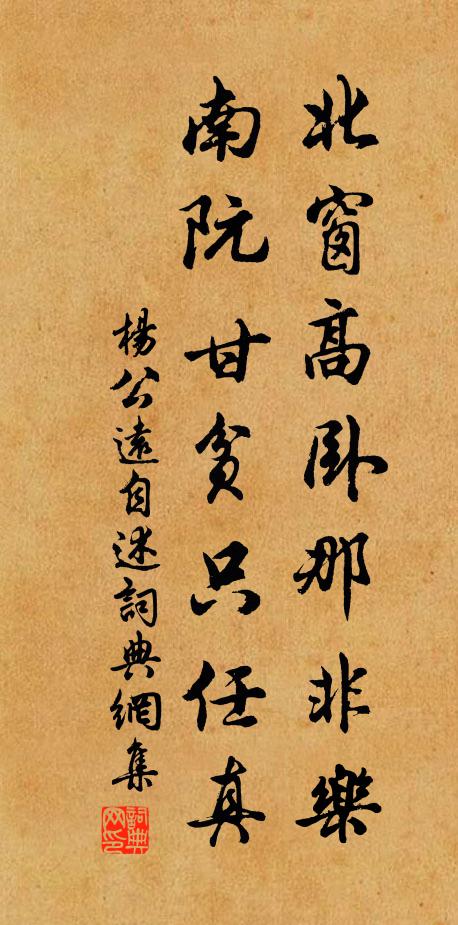 北窗高卧那非樂
南阮甘貧只任真
楊公遠自述詞典網集
詞典网印